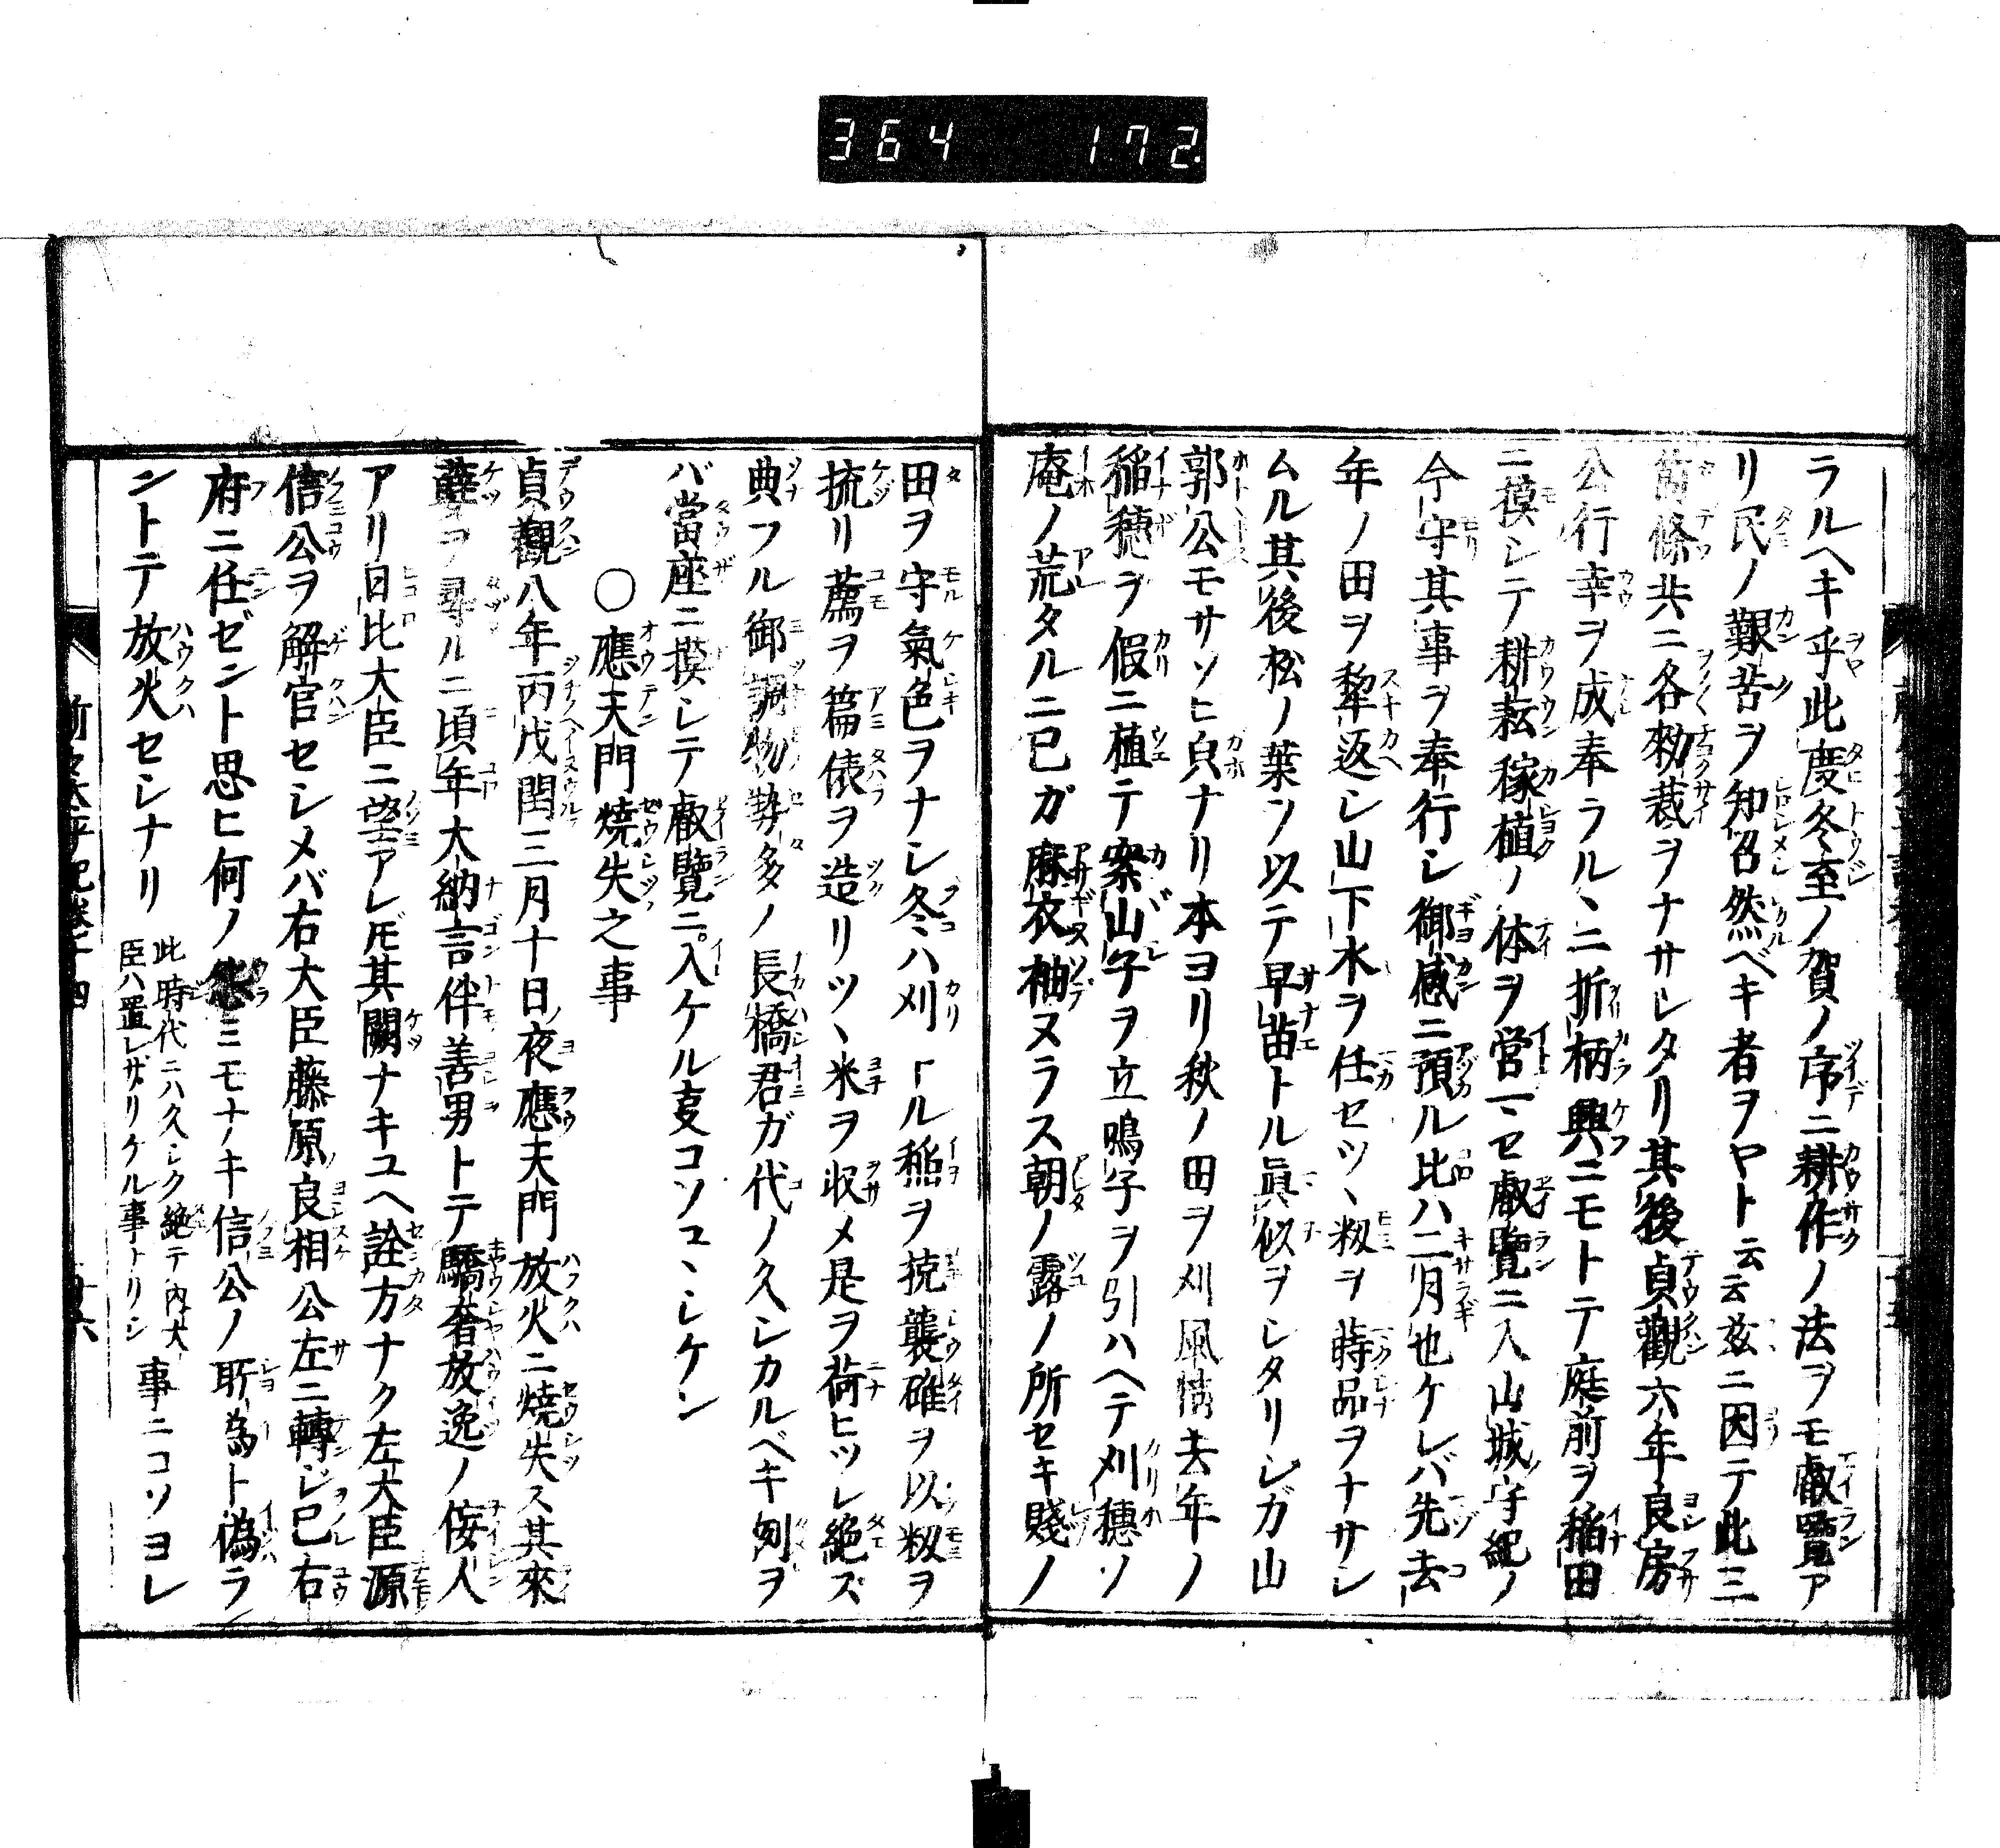 364 172
ラルヘキ乎此度冬至ノ賀ノ序ニ耕作ノ法ヲモ叡覽ア
リ民ノ艱苦ヲ知召然ベキ者ヲヤト云云玆ニ因テ此三
箇條共ニ各勅裁ヲナサレタリ其後貞觀六年良房
公行幸ヲ成奉ラルヽニ折柄興ニモトテ庭前ヲ稲田
ニ摸シテ耕耘稼植ノ体ヲ営マセ叡覽ニ入山城守紀ノ
今守其事ヲ奉行シ御感ニ預ル比ハ二月也ケレバ先去
年ノ田ヲ犂返シ山下水ヲ任セツヽ籾ヲ蒔品ヲナサシ
ムル其後松ノ葉ヲ以テ早苗トル眞似ヲシタリシガ山
郭公モサソヒ皃ナリ本ヨリ秋ノ田ヲ刈風情去年ノ
稲穂ヲ假ニ植テ案山子ヲ立鳴子ヲ引ハヘテ刈穗ソ
庵ノ荒タルニ己ガ麻衣袖ヌラス朝ノ露ノ所セキ賤ノ
田ヲ守氣色ヲナシ冬ハ刈トル稲ヲ ヲ以籾ヲ
リ薦ヲ篇俵ヲ造リツヽ米ヲ収メ是ヲ荷ヒツレ絶ズ
典フル御調物勢多ノ長橋君ガ代ノ久シカルベキ ヲ
バ當座ニ摸シテ叡覽ニ入ケル叓コソユヽシケレ
○應天門燒失之事
貞觀八年丙戌閏三月十日ノ夜應天門放火ニ燒失ス其來
ヲ尋ルニ頃年大納言伴善男トテ驕奢放逸ノ侫人
アリ日比大臣ニ望アレ𪜈其闕ナキユヘ詮方ナク左大臣源
信公ヲ解官セシメバ右大臣藤原良相公左ニ轉ジ己右
府ニ任ゼント思ヒ何ノ ミモナキ信公ノ所為ト偽ラ
ントテ放火セシナリ 此時代ニハ久シク絶テ内大
臣ハ置レザリケル事トリシ 事ニコソヨレ